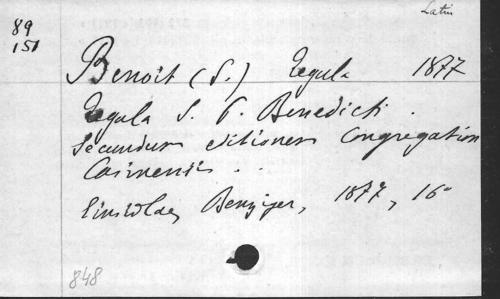 Latin
89
151
Benoit (S.) Regula 1877
Regula S. P. Benedicti.
Secundum editionem Congregation
Casinensis . .
Einsidlae, Benziger, 1877, 16°
848